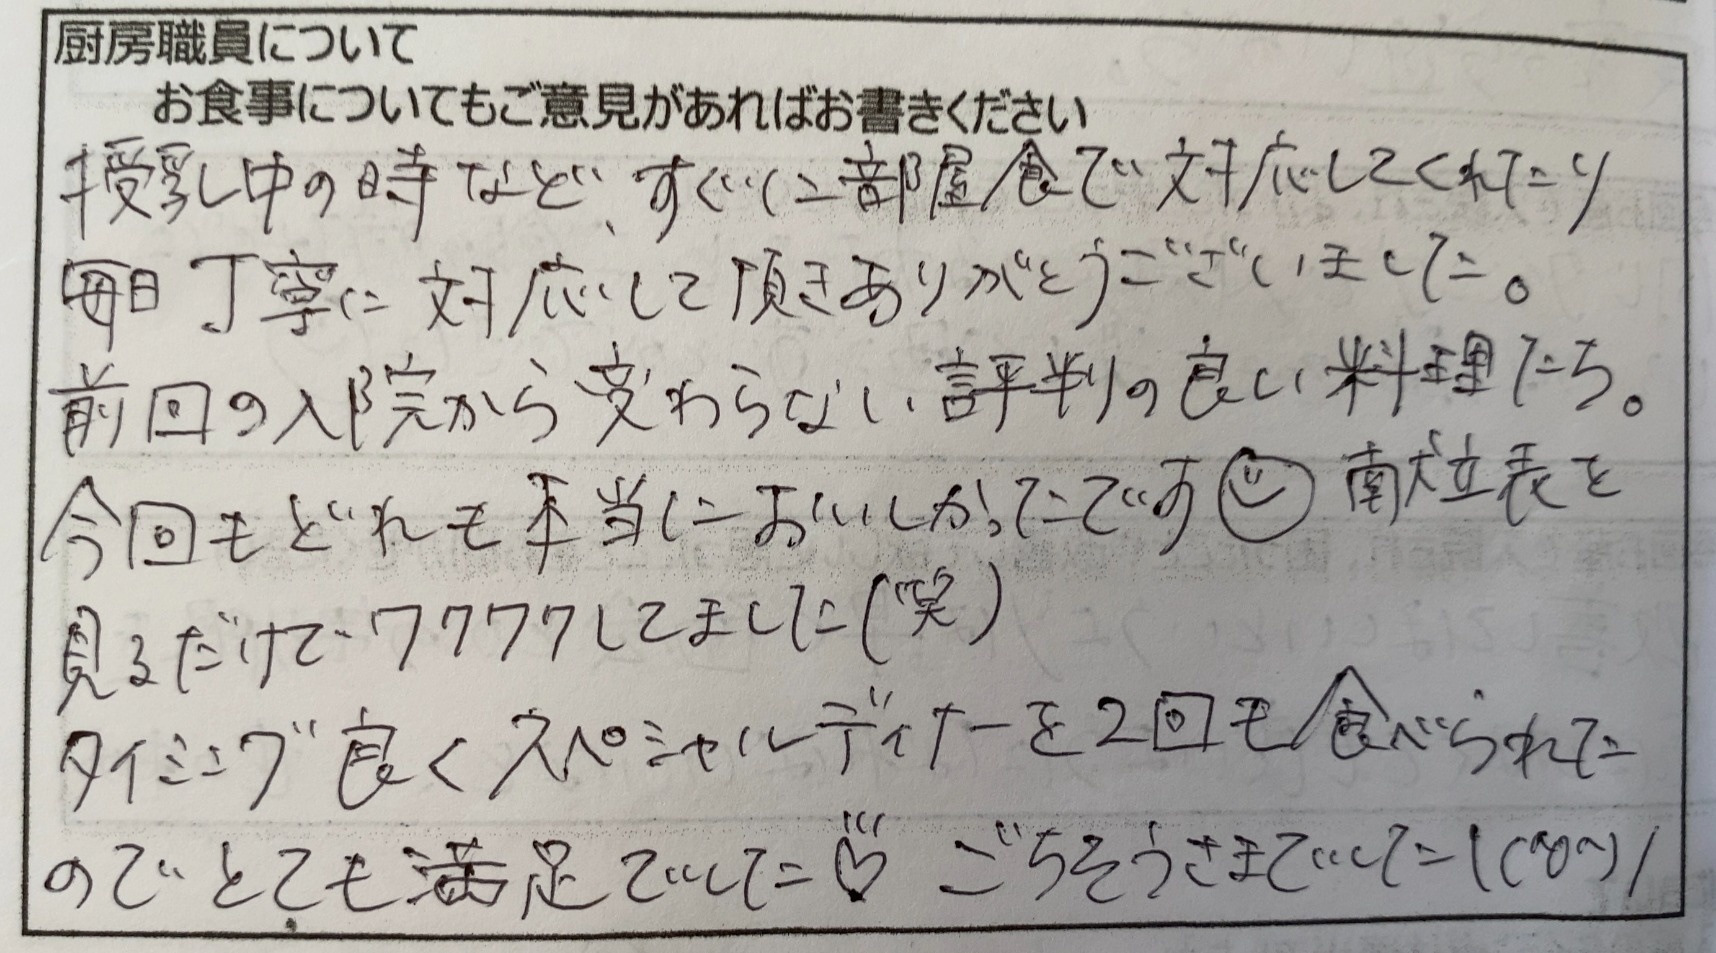 厨房職員について
お食事についてもご意見があればお書きください
授乳中の時など、すぐに部屋食で対応してくれたり
毎日丁寧に対応して頂きありがとうございました。
前回の入院から変わらない評判の良い料理たち。
今回もどれも本当においしかったです☺ 献立表を
見るだけでワクワクしてました(笑)
タイミング良くスペシャルディナーを2回も食べられた
のでとても満足でした♡ ごちそうさまでした\(^o^)/